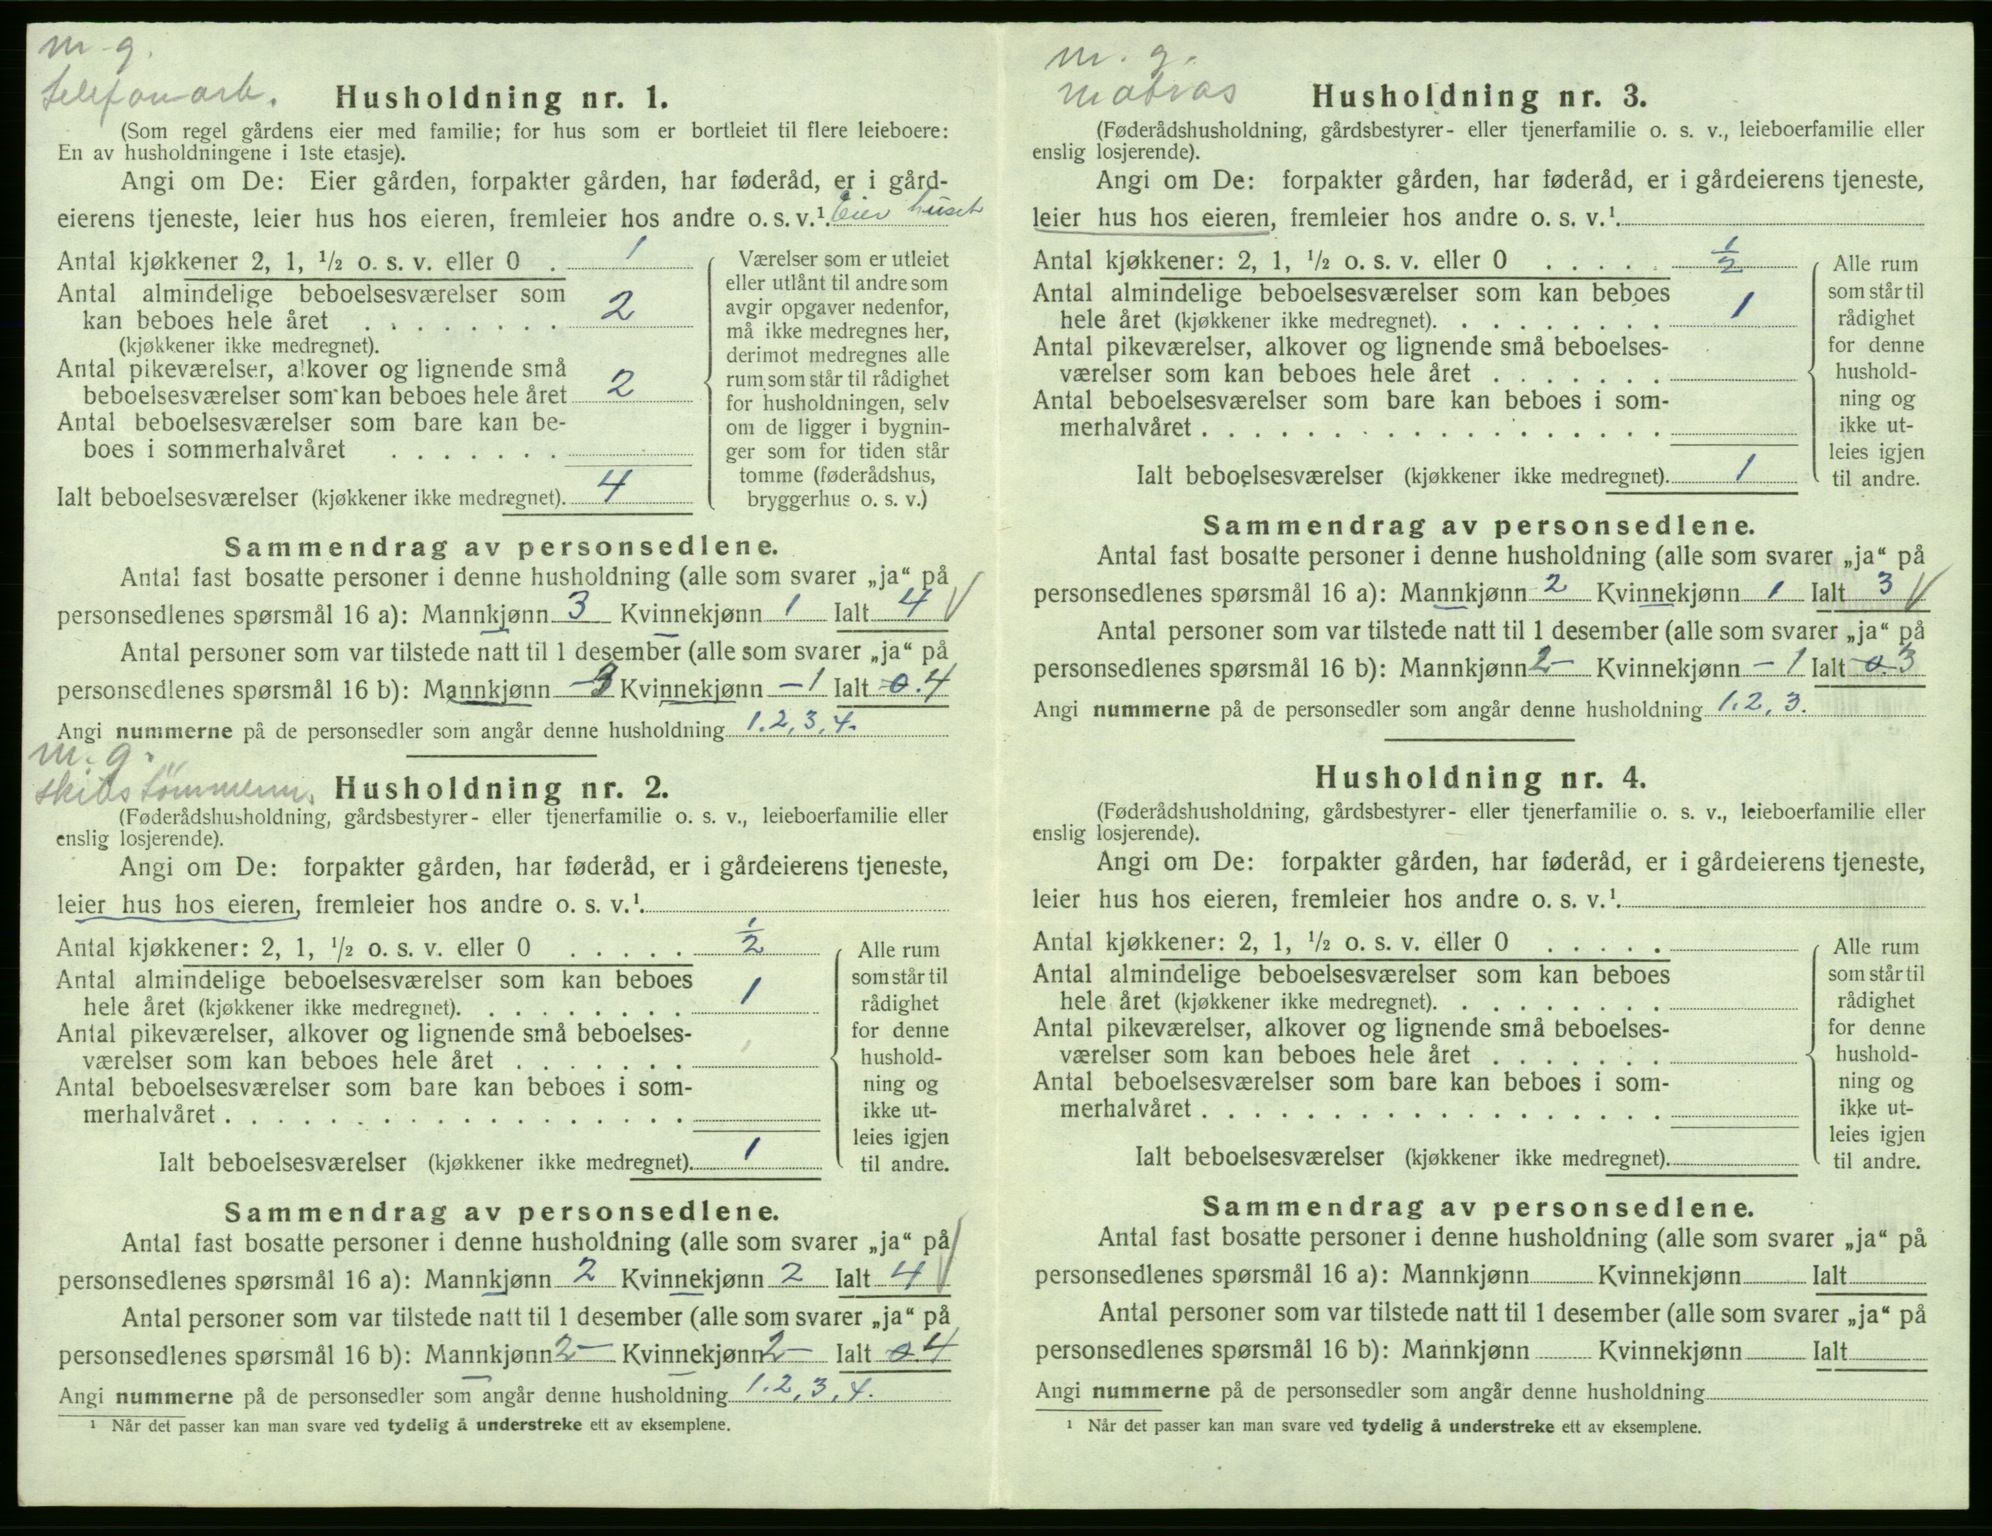 m. g.
telefonarb. Husholdning nr. 1.
(Som regel gårdens eier med familie; for hus som er bortleiet til flere leieboere:
En av husholdningene i 1ste etasje).
Angi om De: Eier gården, forpakter gården, har føderåd, er i gård-
eierens tjeneste, leier hus hos eieren, fremleier hos andre o. s. v.¹. Eier huset
Antal kjøkkener 2, 1, ½ o. s. v. eller 0 . 1
Antal almindelige beboelsesværelser som
kan beboes hele året . . . . . . . 2
(kjøkkener ikke medregnet).
Antal pikeværelser, alkover og lignende små
beboelsesværelser som kan beboes hele året 2
Antal beboelsesværelser som bare kan be-
boes i sommerhalvåret . . . . . . .
Ialt beboelsesværelser (kjøkkener ikke medregnet). 4
Værelser som er utleiet
eller utlånt til andre som
avgir opgaver nedenfor,
må ikke medregnes her,
derimot medregnes alle
rum som står til rådighet
for husholdningen, selv
om de ligger i bygnin-
ger som for tiden står
tomme (føderådshus,
bryggerhus o. s. v.)
Sammendrag av personsedlene.
Antal fast bosatte personer i denne husholdning (alle som svarer „ja“ på
personsedlenes spørsmål 16 a): Mannkjønn 3 Kvinnekjønn 1 Ialt 4
Antal personer som var tilstede natt til 1 desember (alle som svarer „ja“ på
personsedlenes spørsmål 16 b): Mannkjønn – 3 Kvinnekjønn – 1 Ialt 0. 4
Angi nummerne på de personsedler som angår denne husholdning 1. 2, 3, 4.
m. g.
skibstømmerm. Husholdning nr. 2.
(Føderådshusholdning, gårdsbestyrer- eller tjenerfamilie o. s. v., leieboerfamilie eller
enslig losjerende).
Angi om De: forpakter gården, har føderåd, er i gårdeierens tjeneste,
leier hus hos eieren, fremleier hos andre o. s. v.¹.
Antal kjøkkener: 2, 1, ½ o. s. v. eller 0 . . . . . ½
Antal almindelige beboelsesværelser som kan beboes
hele året (kjøkkener ikke medregnet). . . . . . . . . 1
Antal pikeværelser, alkover og lignende små beboelses-
værelser som kan beboes hele året . . . . . . .
Antal beboelsesværelser som bare kan beboes i som-
merhalvåret . . . . . . . . . . . . . . . . . .
Ialt beboelsesværelser (kjøkkener ikke medregnet). 1
Alle rum
som står til
rådighet
for denne
hushold-
ning og
ikke ut-
leies igjen
til andre.
Sammendrag av personsedlene.
Antal fast bosatte personer i denne husholdning (alle som svarer „ja“ på
personsedlenes spørsmål 16 a): Mannkjønn 2 Kvinnekjønn 2 Ialt 4
Antal personer som var tilstede natt til 1 desember (alle som svarer „ja“ på
personsedlenes spørsmål 16 b): Mannkjønn 2 – Kvinnekjønn 2 – Ialt 0. 4
Angi nummerne på de personsedler som angår denne husholdning 1. 2, 3, 4.
¹ Når det passer kan man svare ved tydelig å understreke ett av eksemplene.
m. g.
matros Husholdning nr. 3.
(Føderådshusholdning, gårdsbestyrer- eller tjenerfamilie o. s. v., leieboerfamilie eller
enslig losjerende).
Angi om De: forpakter gården, har føderåd, er i gårdeierens tjeneste,
leier hus hos eieren, fremleier hos andre o. s. v.¹.
Antal kjøkkener: 2, 1, ½ o. s. v. eller 0 . . . . . ½
Antal almindelige beboelsesværelser som kan beboes
hele året (kjøkkener ikke medregnet). . . . . . . . . 1
Antal pikeværelser, alkover og lignende små beboelses-
værelser som kan beboes hele året . . . . . . .
Antal beboelsesværelser som bare kan beboes i som-
merhalvåret . . . . . . . . . . . . . . . . . .
Ialt beboelsesværelser (kjøkkener ikke medregnet). 1
Alle rum
som står til
rådighet
for denne
hushold-
ning og
ikke ut-
leies igjen
til andre.
Sammendrag av personsedlene.
Antal fast bosatte personer i denne husholdning (alle som svarer „ja“ på
personsedlenes spørsmål 16 a): Mannkjønn 2 Kvinnekjønn 1 Ialt 3
Antal personer som var tilstede natt til 1 desember (alle som svarer „ja“ på
personsedlenes spørsmål 16 b): Mannkjønn 2 – Kvinnekjønn – 1 Ialt 0. 3
Angi nummerne på de personsedler som angår denne husholdning 1. 2, 3.
Husholdning nr. 4.
(Føderådshusholdning, gårdsbestyrer- eller tjenerfamilie o. s. v., leieboerfamilie eller
enslig losjerende).
Angi om De: forpakter gården, har føderåd, er i gårdeierens tjeneste,
leier hus hos eieren, fremleier hos andre o. s. v.¹.
Antal kjøkkener: 2, 1, ½ o. s. v. eller 0 . . . . .
Antal almindelige beboelsesværelser som kan beboes
hele året (kjøkkener ikke medregnet). . . . . . . . .
Antal pikeværelser, alkover og lignende små beboelses-
værelser som kan beboes hele året . . . . . . .
Antal beboelsesværelser som bare kan beboes i som-
merhalvåret . . . . . . . . . . . . . . . . . .
Ialt beboelsesværelser (kjøkkener ikke medregnet).
Alle rum
som står til
rådighet
for denne
hushold-
ning og
ikke ut-
leies igjen
til andre.
Sammendrag av personsedlene.
Antal fast bosatte personer i denne husholdning (alle som svarer „ja“ på
personsedlenes spørsmål 16 a): Mannkjønn Kvinnekjønn Ialt
Antal personer som var tilstede natt til 1 desember (alle som svarer „ja“ på
personsedlenes spørsmål 16 b): Mannkjønn Kvinnekjønn Ialt
Angi nummerne på de personsedler som angår denne husholdning
¹ Når det passer kan man svare ved tydelig å understreke ett av eksemplene.